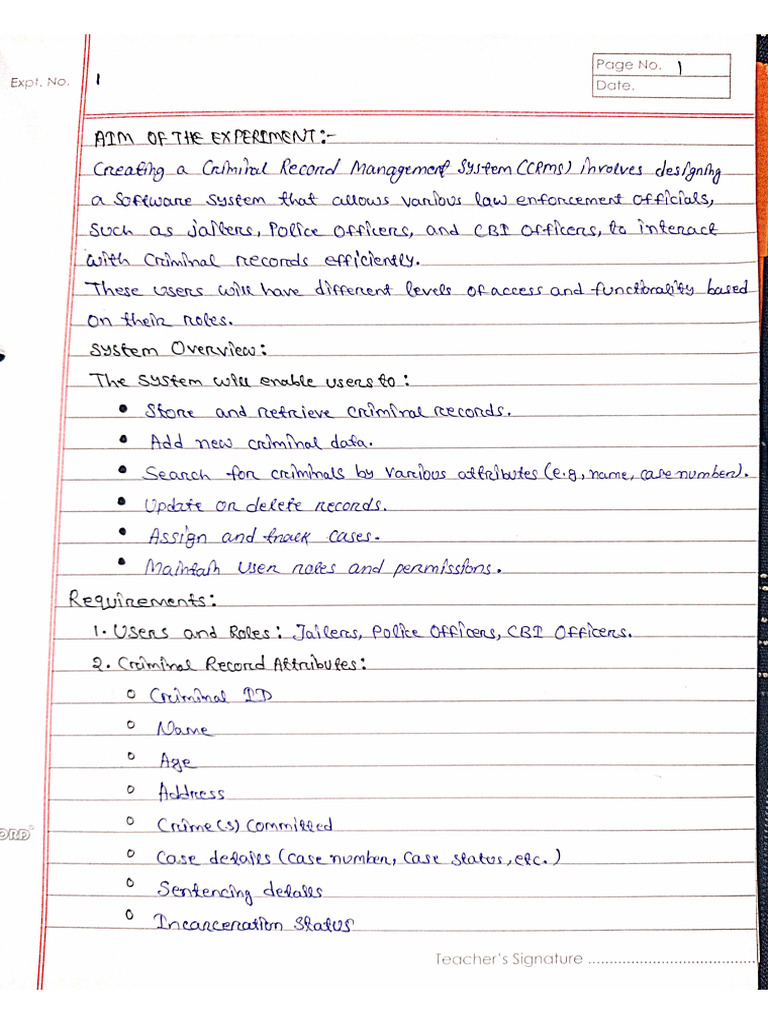 Expt. No. 1
Page No. 1
Date.
AIM OF THE EXPERIMENT:-
Creating a Criminal Record Management System (CRMS) involves designing
a software system that allows various law enforcement officials,
such as jailers, Police Officers, and CBI Officers, to interact
with criminal records efficiently.
These users will have different levels of access and functionality based
on their roles.
System Overview:
The system will enable users to:
• Store and retrieve criminal records.
• Add new criminal data.
• Search for criminals by various attributes (e.g, name, case number).
• Update or delete records.
• Assign and track cases.
• Maintain user roles and permissions.
Requirements:
1. Users and Roles: Jailers, Police Officers, CBI Officers.
2. Criminal Record Attributes:
o Criminal ID
o Name
o Age
o Address
o Crime(s) Committed
o Case details (Case number, Case status, etc.)
o Sentencing details
o Incarceration Status
ORD
Teacher's Signature ......................................